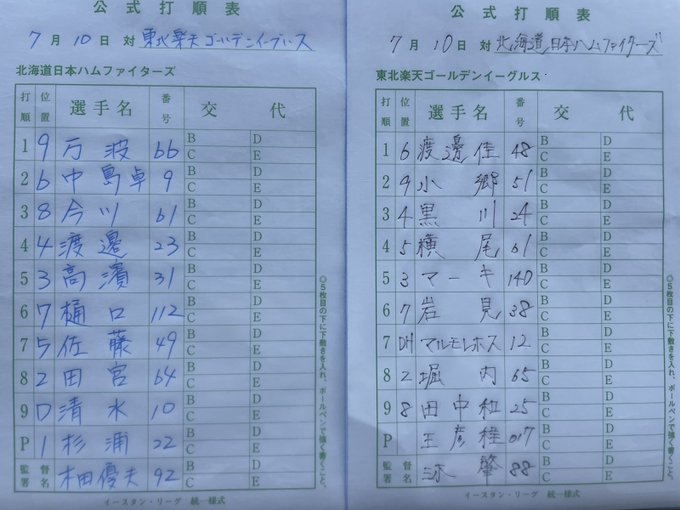 公式打順表
7月10日 対 東北楽天ゴールデンイーグルス
北海道日本ハムファイターズ
打順 位置 選手名 番号 交代
1 9 万波 66 B C D E
2 6 中島卓 9 B C D E
3 8 今川 61 B C D E
4 4 渡邉 23 B C D E
5 3 高濱 31 B C D E
6 7 樋口 112 B C D E
7 5 佐藤 49 B C D E
8 2 田宮 64 B C D E
9 D 清水 10 B C D E
P 1 杉浦 22 B C D E
監督署名 木田優夫 92 B C D E
イースタン・リーグ 統一様式
公式打順表
7月10日 対 北海道日本ハムファイターズ
東北楽天ゴールデンイーグルス
打順 位置 選手名 番号 交代
1 6 渡邊佳 48 B C D E
2 9 小郷 51 B C D E
3 4 黒川 24 B C D E
4 5 横尾 61 B C D E
5 3 マーキ 140 B C D E
6 7 岩見 38 B C D E
7 DH マルモレホス 12 B C D E
8 2 堀内 65 B C D E
9 8 田中和 25 B C D E
P 王彦程 017 B C D E
監督署名 三木肇 88 B C D E
イースタン・リーグ 統一様式
◎5枚目の下に下敷きを入れ、ボールペンで強く書くこと。
◎5枚目の下に下敷きを入れ、ボールペンで強く書くこと。